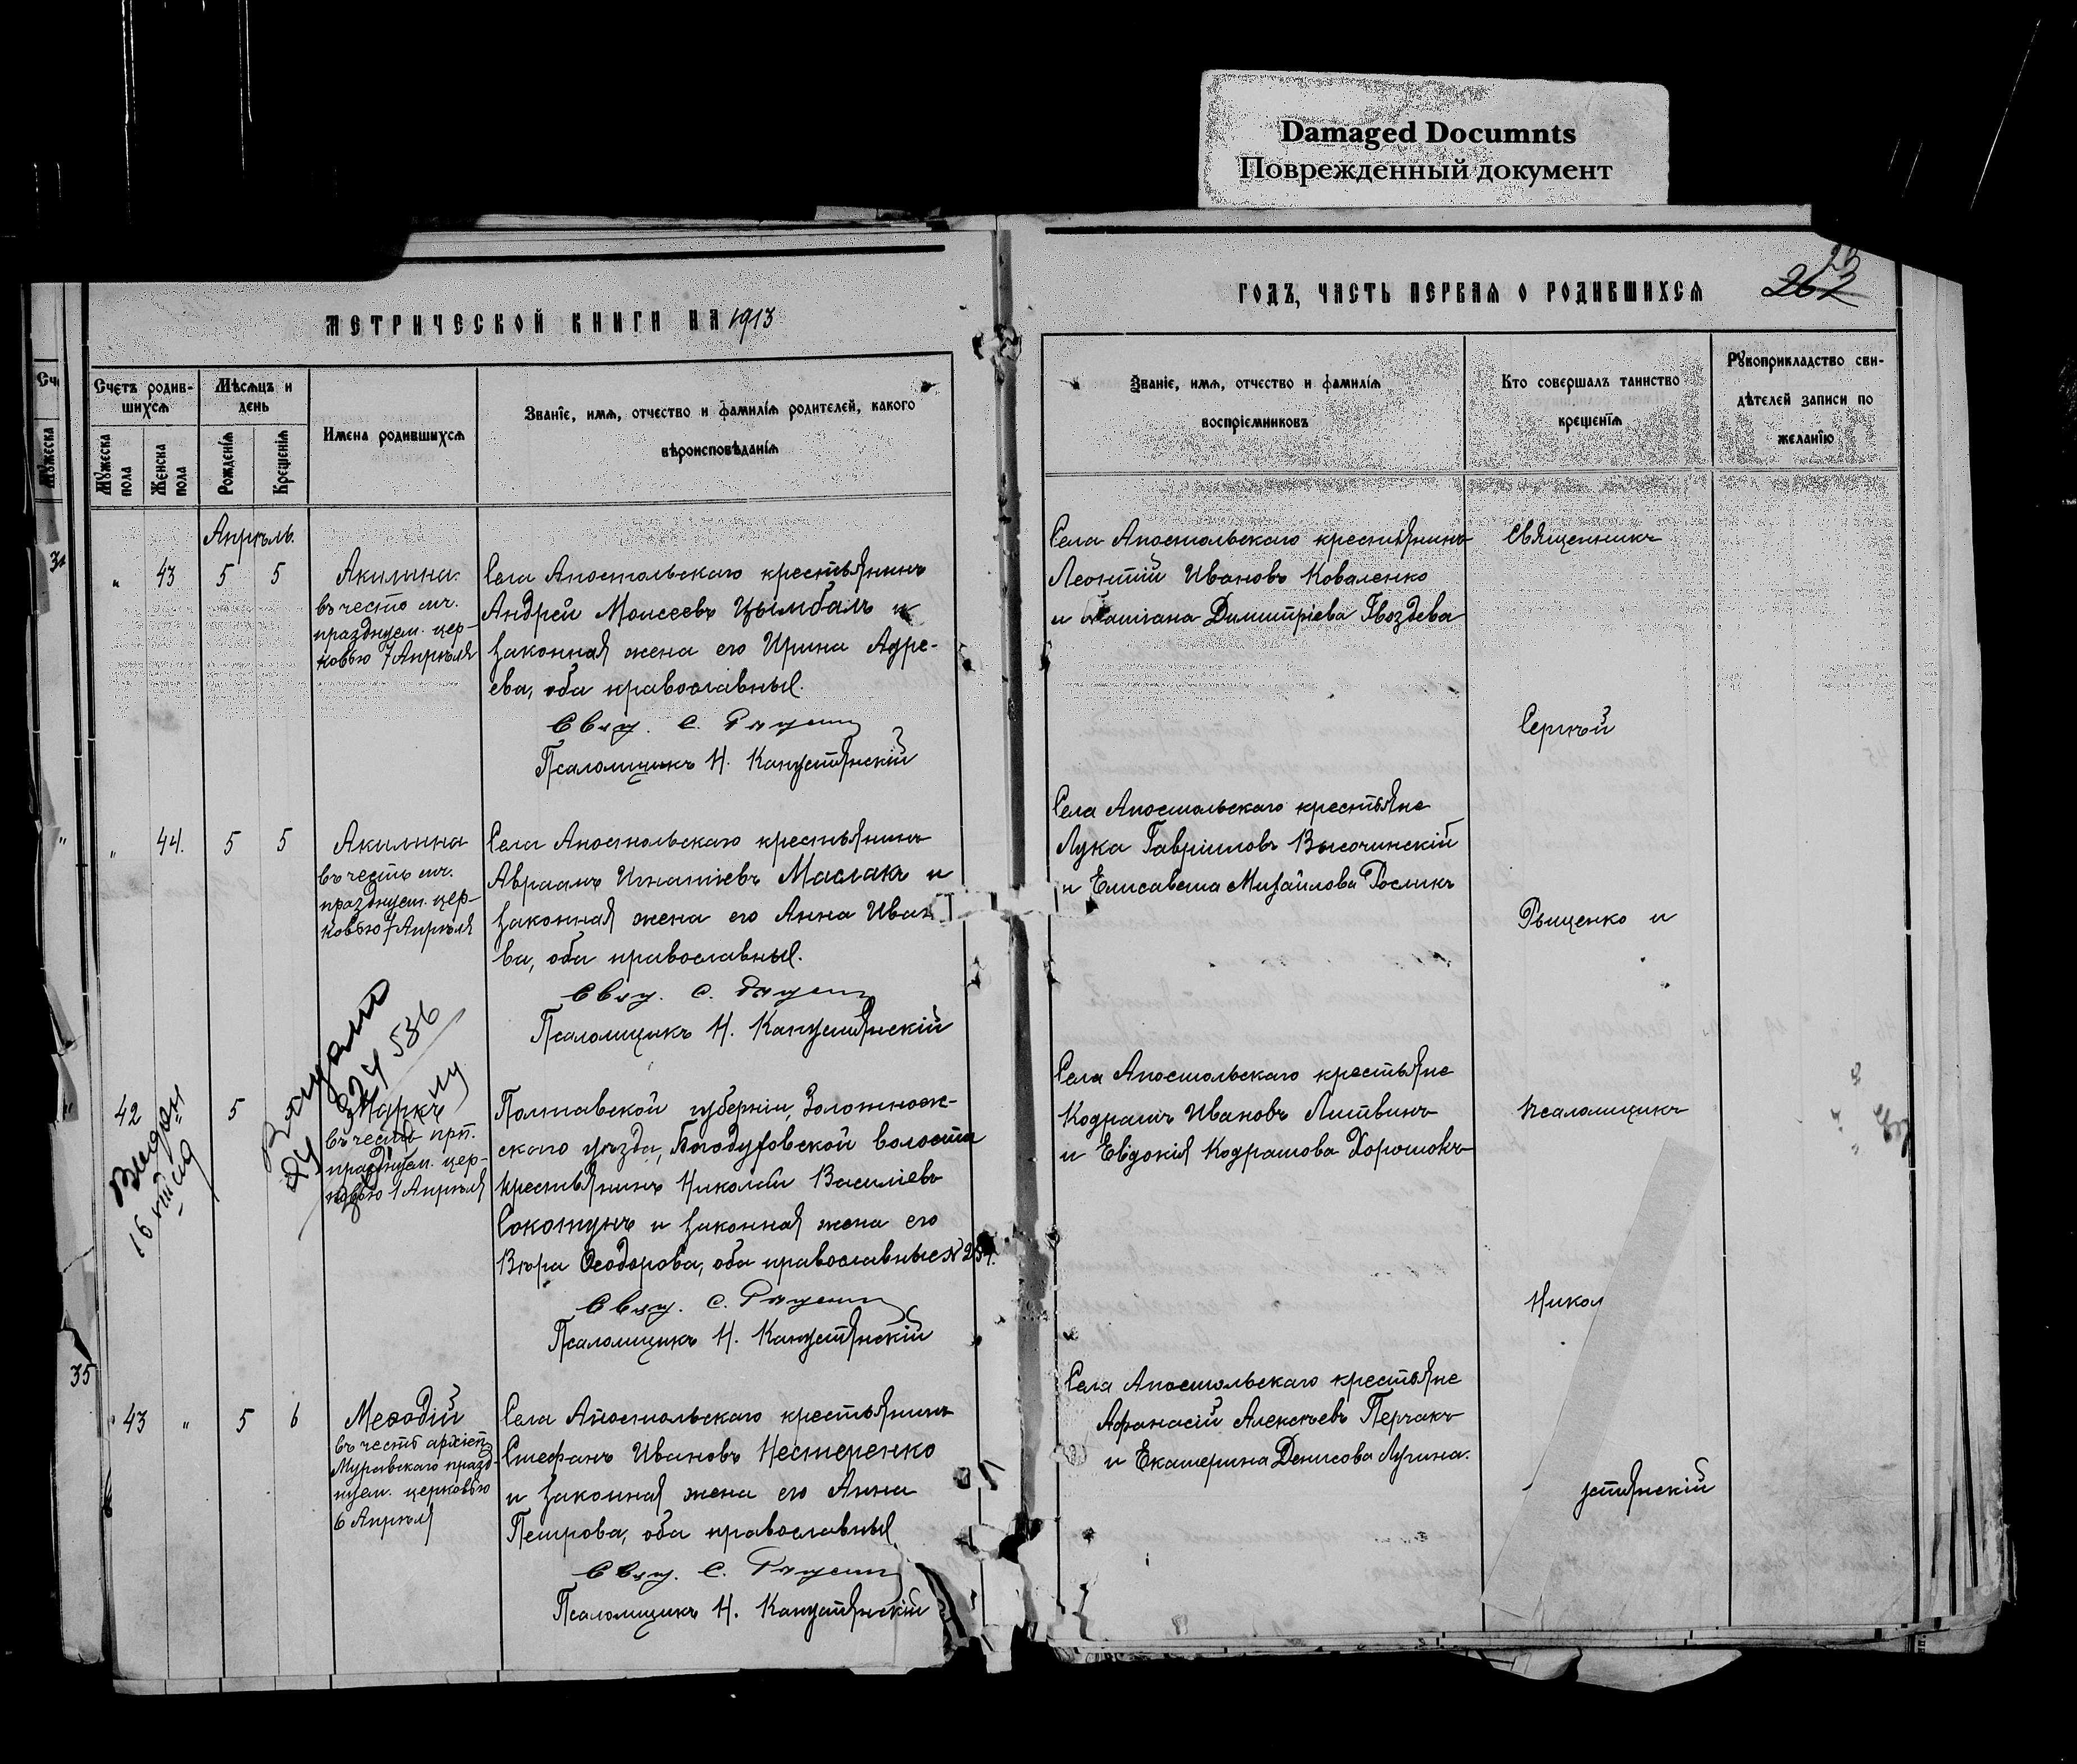 Damaged Documnts
Поврежденный документ
МЕТРИЧЕСКОЙ КНИГИ НА 1913
ГОДЪ, ЧАСТЬ ПЕРВАЯ О РОДИВШИХСЯ
Счетъ родив-
шихся
Мужеска
пола
Женска
пола
Мѣсяцъ и
день
Рожденія
Крещенія
Имена родившихся
Званіе, имя, отчество и фамилія родителей, какого
вѣроисповѣданія
Званіе, имя, отчество и фамилія
воспріемниковъ
Кто совершалъ таинство
крещенія
Рукоприкладство сви-
дѣтелей записи по
желанію
Апрѣль.
" 43 5 5
Акилина.
въ честь мч.
празднуем. цер-
ковью 7 Апрѣля
Села Апостольскаго крестьянинъ
Андрей Моисеевъ Цымбалъ и
законная жена его Ирина Адре-
ева, оба православные.
Свящ. С.
Псаломщикъ Н. Капустянскій
Села Апостольскаго крестьянинъ
Леонтій Ивановъ Коваленко
и Татіана Димитріева Гвоздева
Священникъ
Сергѣй
" 44. 5 5
Акилина
въ честь мч.
празднуем. цер-
ковью 7 Апрѣля
Села Апостольскаго крестьянинъ
Авраамъ Игнатіевъ Маслакъ и
законная жена его Анна Иван
ва, оба православные.
Свящ. С.
Псаломщикъ Н. Капустянскій
Села Апостольскаго крестьяне
Лука Гавріиловъ Высочинскій
и Елисавета Михайлова Росликъ
и
42 5
Маркъ
въ честь прп.
празднуем. цер-
ковью 1 Апрѣля
Полтавской губерніи, Золотонош-
скаго уѣзда, Богодуховской волости
крестьянинъ Николай Василіевъ
Сокотунъ и законная жена его
Вѣра Ѳеодорова, оба православные
Свящ. С.
Псаломщикъ Н. Капустянскій
Села Апостольскаго крестьяне
Кодратъ Ивановъ Литвинъ
и Евдокія Кодратова Хорошокъ
псаломщикъ
Никол
35
43 " 5 6
Меѳодій
въ честь архіеп.
Муравскаго празд-
нуем. церковью
6 Апрѣля
Села Апостольскаго крестьянинъ
Стефанъ Ивановъ Нестеренко
и законная жена его Анна
Петрова, оба православные
Свящ. С.
Псаломщикъ Н. Капустянскій
Села Апостольскаго крестьяне
Афанасій Алексѣевъ Перчакъ
и Екатерина Денисова Лугина.
устянскій